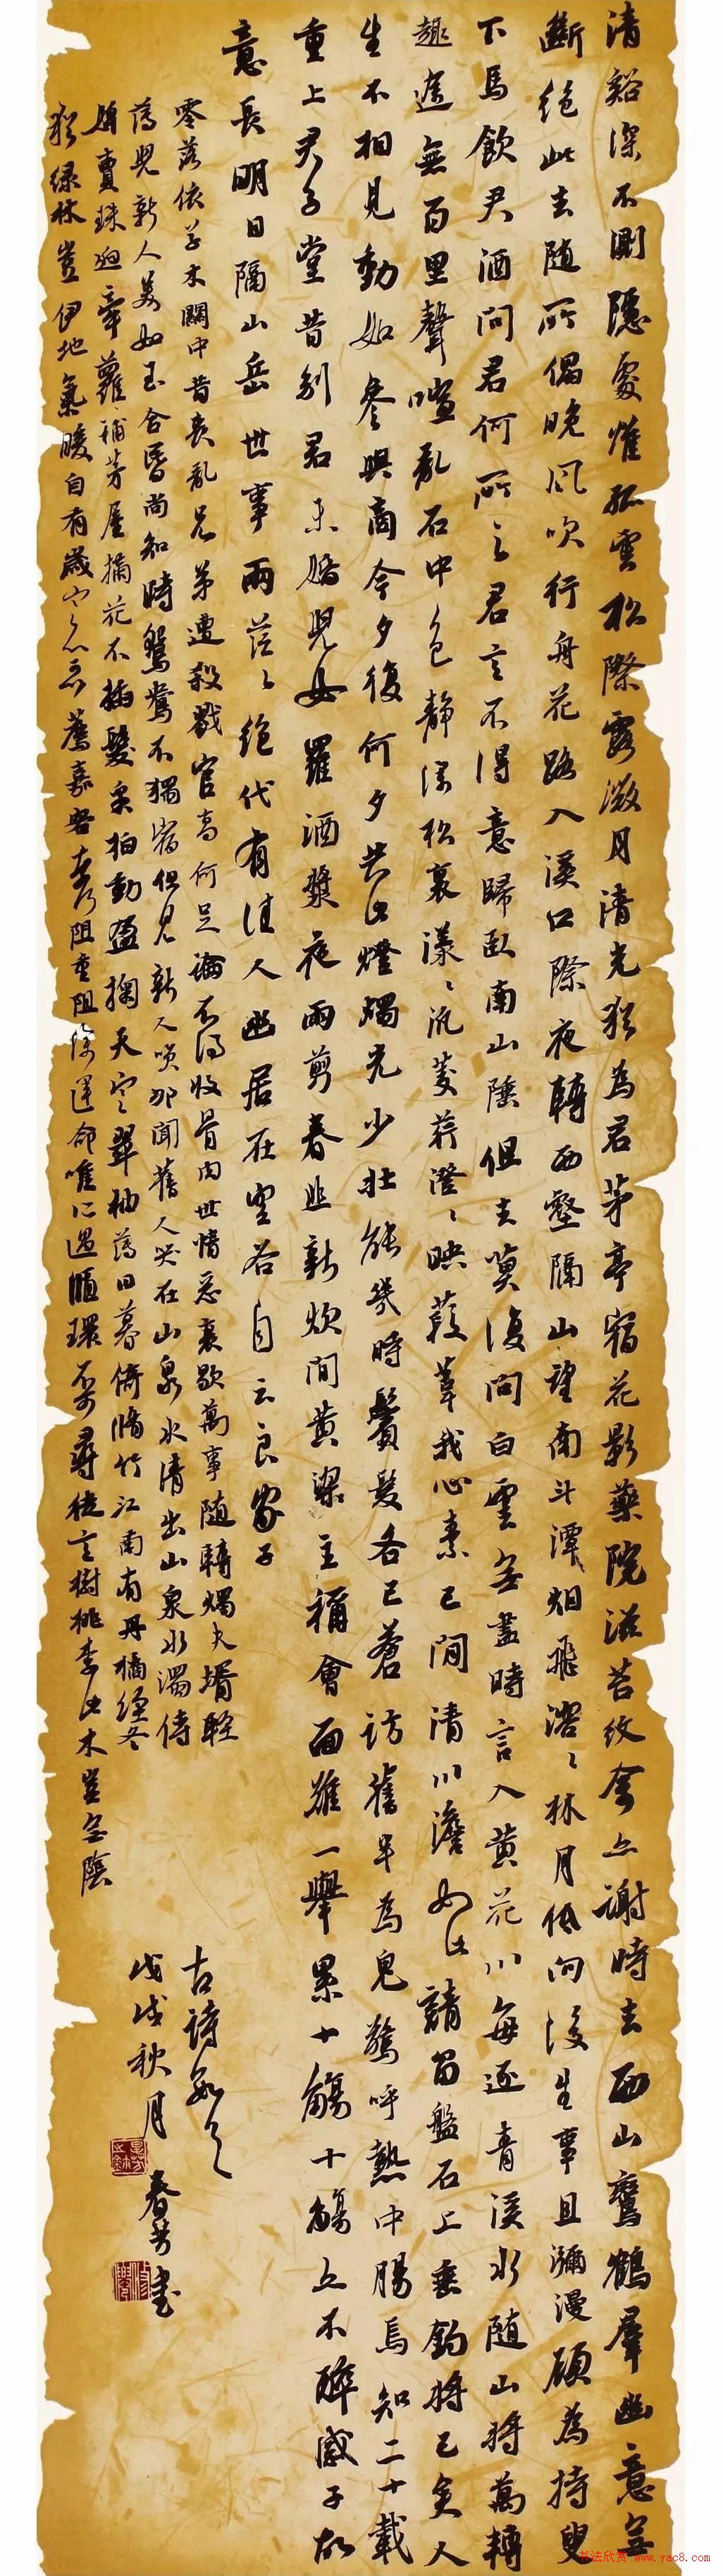 清谿深不測隱處惟孤雲松際露微月清光猶為君茅亭宿花影藥院滋苔紋余亦謝時去西山鸞鶴羣幽意無
斷絕此去隨所偶晚風吹行舟花路入溪口際夜轉西壑隔山望南斗潭烟飛溶溶林月低向後生事且瀰漫願為持竿叟
下馬飲君酒問君何所之君言不得意歸臥南山陲但去莫復問白雲無盡時言入黃花川每逐青溪水隨山將萬轉
趣途無百里聲喧亂石中色靜深松裏漾漾汎菱荇澄澄映葭葦我心素已閒清川澹如此請留盤石上垂釣將已矣人
生不相見動如參與商今夕復何夕共此燈燭光少壯能幾時鬢髮各已蒼訪舊半為鬼驚呼熱中腸焉知二十載
重上君子堂昔別君未婚兒女羅酒漿夜雨剪春韭新炊間黃粱主稱會面難一舉累十觴十觴亦不醉感子故
意長明日隔山岳世事兩茫茫絕代有佳人幽居在空谷自云良家子
零落依草木關中昔喪亂兄弟遭殺戮官高何足論不得收骨肉世情惡衰歇萬事隨轉燭夫壻輕
薄兒新人美如玉合昏尚知時鴛鴦不獨宿但見新人笑那聞舊人哭在山泉水清出山泉水濁侍
婢賣珠迴牽蘿補茅屋摘花不插髮采柏動盈掬天寒翠袖薄日暮倚脩竹江南有丹橘經冬
猶綠林豈伊地氣暖自有歲寒心可以薦嘉客奈何阻重深運命唯所遇循環不可尋徒言樹桃李此木豈無陰
古詩數首
戊戌秋月
春芳書
书法欣赏 www.yac8.com